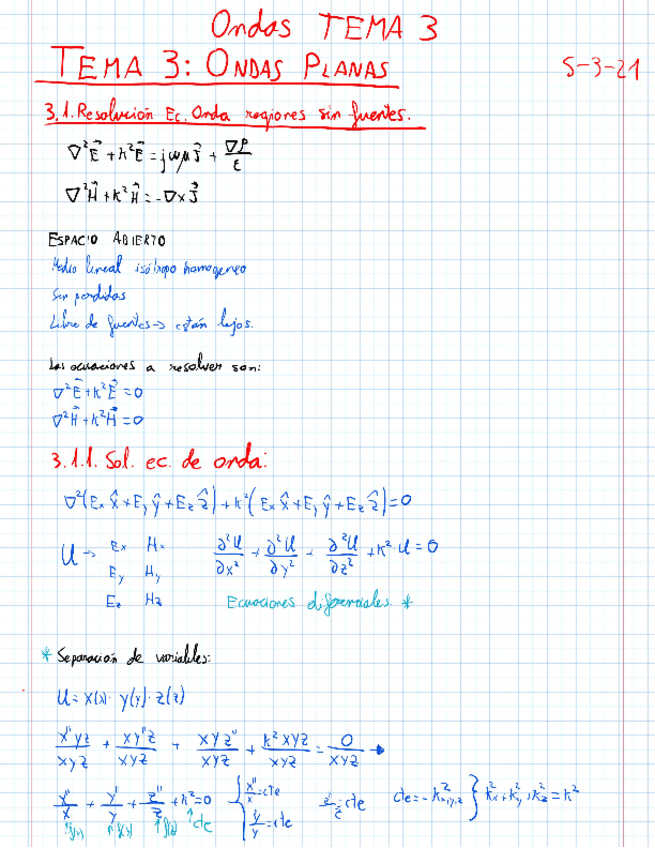 Ondas TEMA 3
TEMA 3: ONDAS PLANAS 5-3-21
3.1. Resolución Ec. Onda regiones sin fuentes.
∇²E⃗ + k²E⃗ = jωμJ⃗ + ∇ρ/ε
∇²H⃗ + k²H⃗ = -∇×J⃗
ESPACIO ABIERTO
Medio lineal isótropo homogeneo
Sin perdidas
Libre de fuentes -> están lejos.
Las ecuaciones a resolver son:
∇²E⃗ + k²E⃗ = 0
∇²H⃗ + k²H⃗ = 0
3.1.1. Sol. ec. de onda:
∇²(Ex x̂ + Ey ŷ + Ez ẑ) + k²(Ex x̂ + Ey ŷ + Ez ẑ) = 0
U -> Ex Hx ∂²U/∂x² + ∂²U/∂y² + ∂²U/∂z² + k²·U = 0
Ey Hy
Ez Hz Ecuaciones diferenciales *
* Separación de variables:
U = X(x)· Y(y)· Z(z)
X''YZ/XYZ + XY''Z/XYZ + XYZ''/XYZ + k²XYZ/XYZ = 0/XYZ →
X''/X + Y''/Y + Z''/Z + k² = 0 { X''/X = cte Z''/Z = cte cte = -k²x,y,z } k²x + k²y + k²z = k²
↑f(x) ↑f(y) ↑f(z) ↑cte Y''/Y = cte